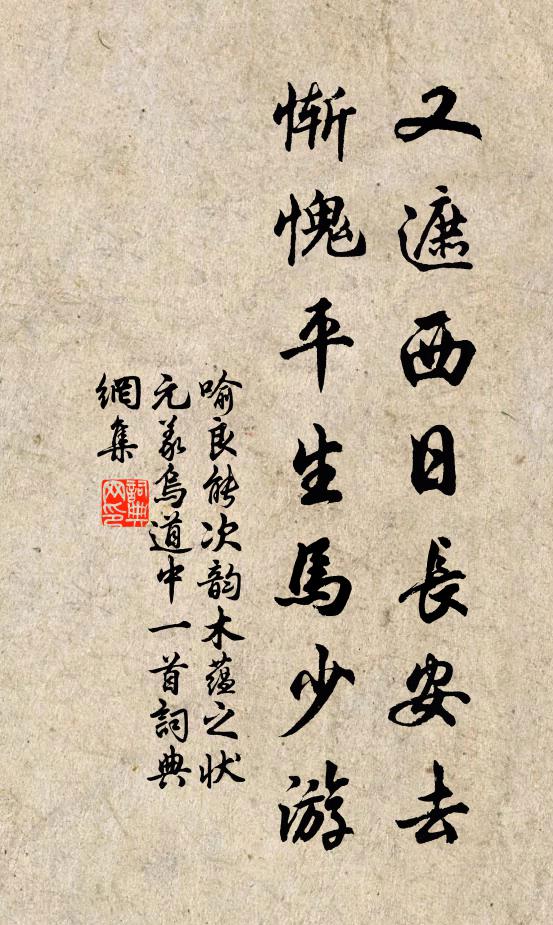 又遮西日長安去
慚愧平生馬少游
喻良能次韵木蘊之狀
元義烏道中一首詞典
網集
詞典
网印